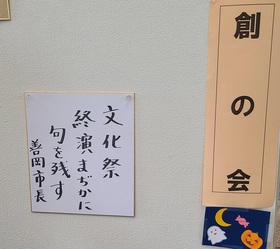 創の会
文化祭
終演まぢかに
句を残す
善岡市長